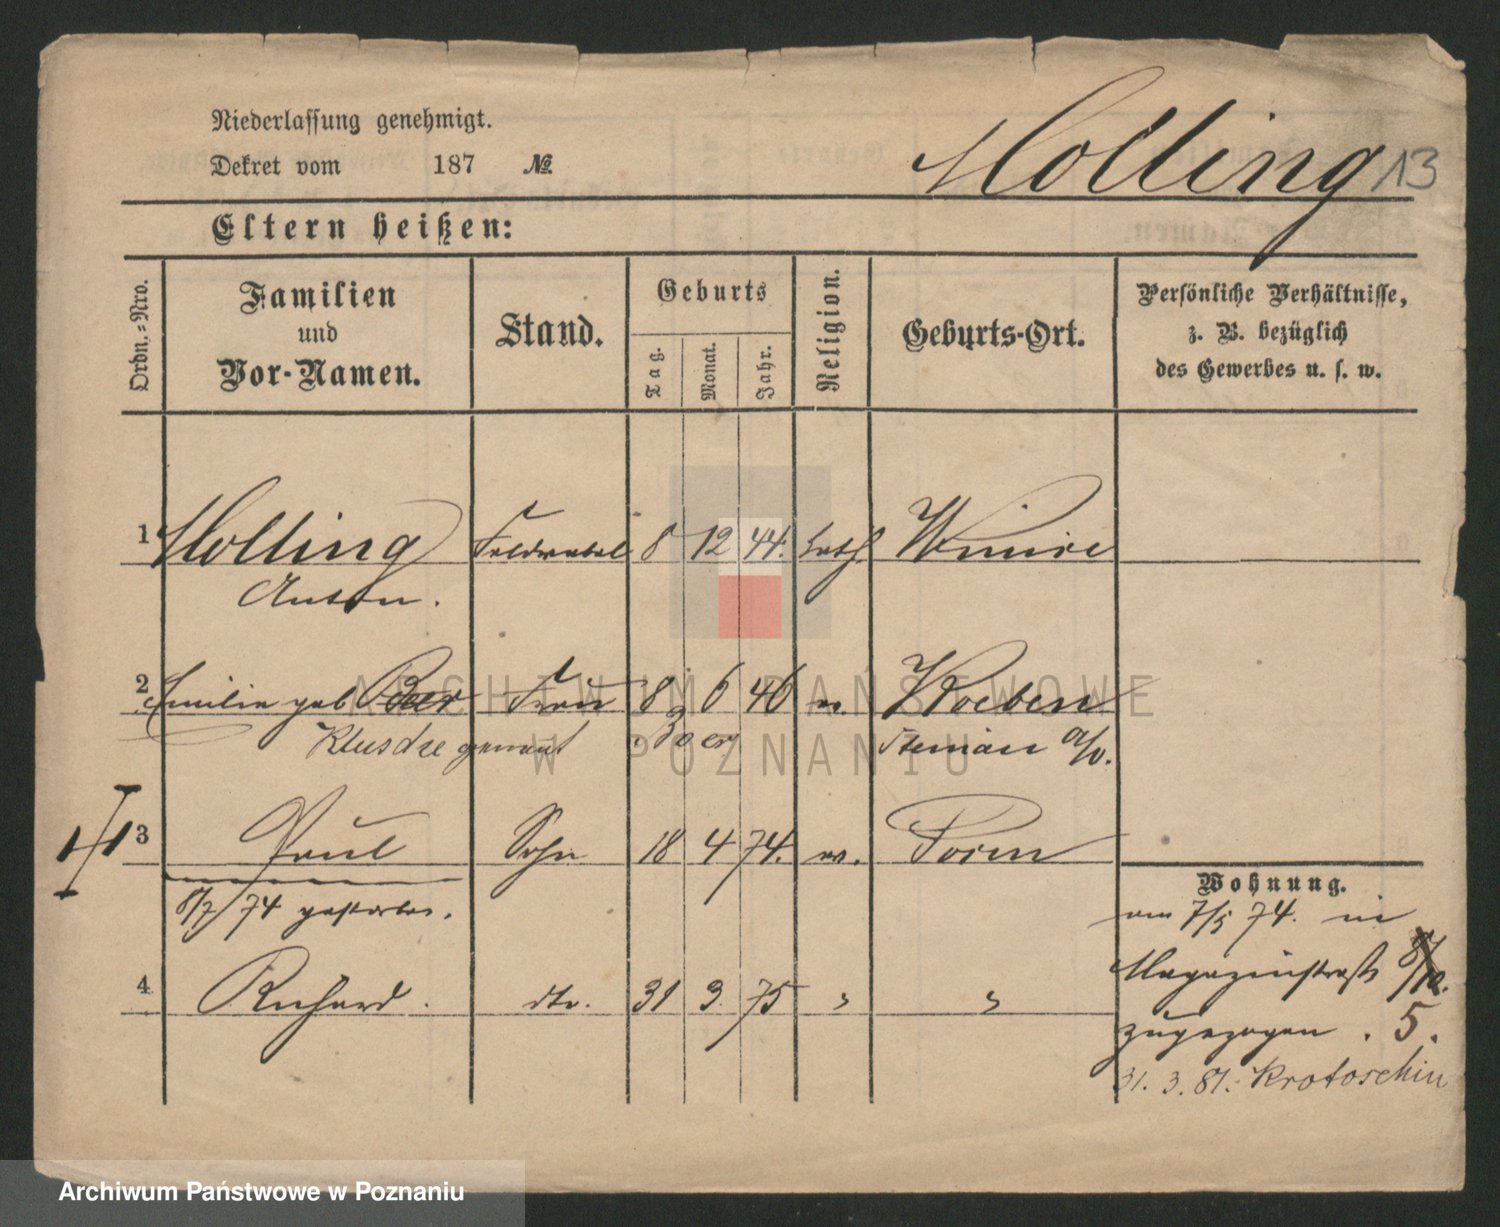 Niederlassung genehmigt.
Dekret vom 187 №
Molling 13
Eltern heißen:
Ordn.-Nro.
Familien und Vor-Namen.
Stand.
Geburts
Tag.
Monat.
Jahr.
Religion.
Geburts-Ort.
Persönliche Verhältnisse, z. B. bezüglich des Gewerbes u. s. w.
1 Molling Feldwebel 8 12 44. kath.
Anton.
2 Emilie geb Beer Frau 8 6 46 ev. Kloeben
Klusdze genannt
3 Paul Sohn 18 4 74. ev. Posen
8/7 74 gestorben.
4 Richard. dto. 31 3. 75 " "
Wohnung.
am 7/5 74. in
Magazinstraße 8/10.
zugezogen . 5.
31. 3. 81. Krotoschin
ARCHIWUM PAŃSTWOWE
W POZNANIU
Archiwum Państwowe w Poznaniu